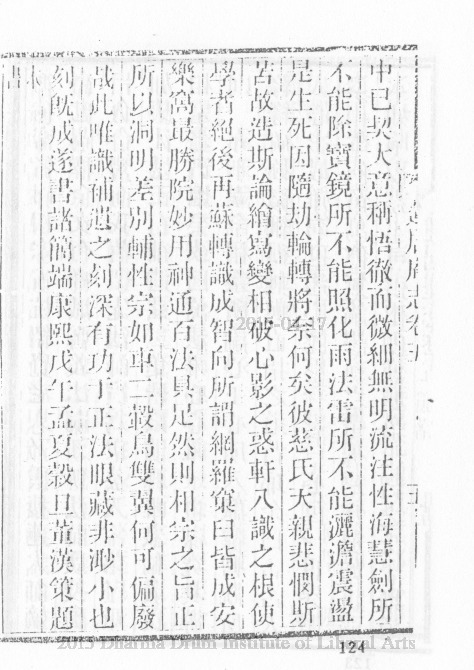 中已契大意稱悟徹而微細無明流注性海慧劍所
不能除寶鏡所不能照化雨法雷所不能灑澹震盪
是生死因隨劫輪轉將奈何矣彼慈氏天親悲憫斯
苦故造斯論繪寫變相破心影之惑軒八識之根使
學者絕後再蘇轉識成智向所謂網羅窠臼皆成安
樂窩最勝院妙用神通百法具足然則相宗之旨正
所以洞明差別輔性宗如車二轂鳥雙翼何可偏廢
哉此唯識補遺之刻深有功于正法眼藏非渺小也
刻旣成遂書諸簡端康熙戊午孟夏穀旦董漢策題
2015-04-17
124
2015 Dharma Drum Institute of Liberal Arts